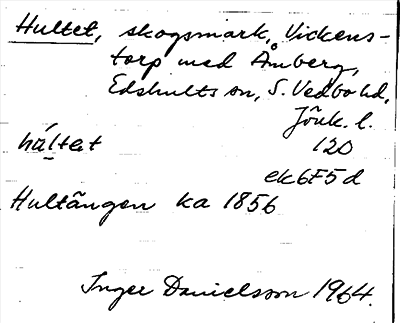 Hultet, skogsmark, Vickens-
torp med Åmberg,
Edshults sn, S. Vedbo hd,
Jönk. l.
hál̠tet 120
ek6F5d
Hultängen ka 1856
Inger Danielsson 1964.